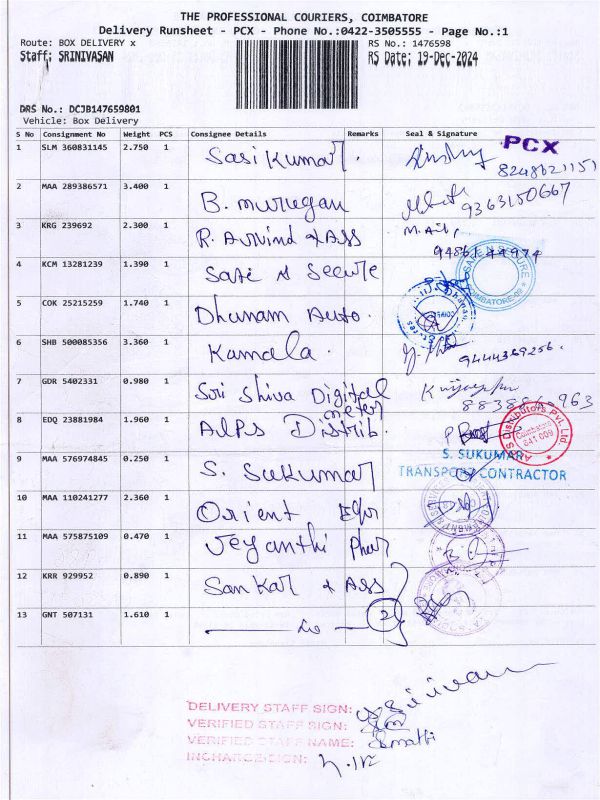 THE PROFESSIONAL COURIERS, COIMBATORE
Delivery Runsheet - PCX - Phone No.:0422-3505555 - Page No.:1
Route: BOX DELIVERY x RS No.: 1476598
Staff: SRINIVASAN RS Date: 19-Dec-2024
DRS No.: DCJB147659801
Vehicle: Box Delivery
S No Consignment No Weight PCS Consignee Details Remarks Seal & Signature PCX
1 SLM 360831145 2.750 1 Sasi Kumar. 8248621151
2 MAA 289386571 3.400 1 B. murugan 9363150667
3 KRG 239692 2.300 1 R. Arvind & Ass
4 KCM 13281239 1.390 1 Safe N Secure
5 COK 25215259 1.740 1 Dhanam Auto.
6 SHB 500085356 3.360 1 Kamala. 9444369256.
7 GDR 5402331 0.980 1 Sri Shiva Digital meter
8 EDQ 23881984 1.960 1 Alps Distrib.
9 MAA 576974845 0.250 1 S. Sukumar S. SUKUMAR
TRANSPORT CONTRACTOR
10 MAA 110241277 2.360 1 Orient
11 MAA 575875109 0.470 1 Jeyanthi Phar
12 KRR 929952 0.890 1 Sankar & Ass
13 GNT 507131 1.610 1 2
DELIVERY STAFF SIGN:
VERIFIED STAFF SIGN:
VERIFIED STAFF NAME:
INCHARGE SIGN: